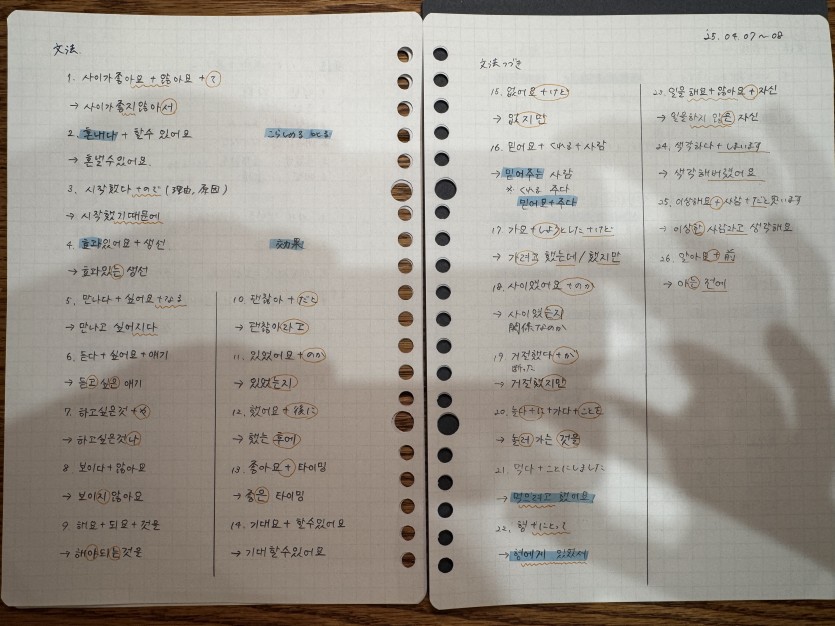 文法
1. 사이가좋아요 + 않아요 + て
→ 사이가좋지않아서
2. 혼내다 + 할수 있어요 こらしめる しかる
→ 혼낼수있어요.
3. 시작했다 + ので (理由, 原因)
→ 시작했기때문에
4. 효과있어요 + 생선 効果
→ 효과있는 생선
5. 만나다 + 싶어요 + なる
→ 만나고 싶어지다
6. 듣다 + 싶어요 + 얘기
→ 듣고 싶은 얘기
7. 하고싶은것 + や
→ 하고싶은것나
8. 보이다 + 않아요
→ 보이지않아요
9. 해요 + 되요 + 것을
→ 해야되는것을
10. 괜찮아 + だと
→ 괜찮아라고
11. 있었어요 + のか
→ 있었는지
12. 했어요 + 後に
→ 했는 후에
13. 좋아요 + タイミング
→ 좋은 タイミング
14. 기대요 + 할수있어요
→ 기대할수있어요
'25. 04. 07 ~ 08
文法つづき
15. 없어요 + けど
→ 없지만
16. 믿어요 + くれる + 사람
→ 믿어주는 사람
* くれる 주다
믿어요 + 주다
17. 가요 + しようとした + けど
→ 가려고 했는데 / 했지만
18. 사이였어요 + のか
→ 사이였는지
関係なのか
19. 거절했다 + が
断った
→ 거절했지만
20. 놀다 + に + 가다 + ことを
→ 놀러 가는 것을
21. 먹다 + ことにしました
→ 먹으려고 했어요
22. 형 + にとって
→ 형에게 있어서
23. 일을 해요 + 않아요 + 자신
→ 일을하지 않은 자신
24. 생각하다 + しまいます
→ 생각해버렸어요
25. 이상해요 + 사람 + だと思います
→ 이상한 사람라고 생각해요
26. 알아요 + 前
→ 아는 전에